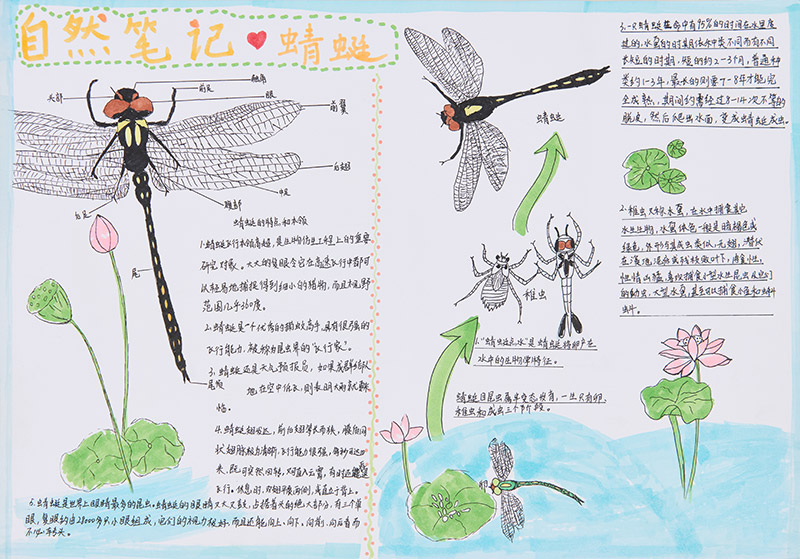 自然笔记 蜻蜓
触角
前足
头部
眼
前翼
后翅
中足
后足
腹部
尾
尾须
蜻蜓的特点和本领
1.蜻蜓飞行本领高超,是生物仿生工程上的重要
研究对象。大大的复眼令它在高速飞行中都可
以轻易地捕捉得到细小的猎物,而且视野
范围几乎360度。
2.蜻蜓是一个优秀的捕蚊高手,具有很强的
飞行能力,被称为昆虫界的“飞行家”。
3.蜻蜓还是天气预报员,如果成群结队
地在空中低飞,则表明大雨就要来
临。
4.蜻蜓翅发达,前后翅等大而狭,膜质网
状翅脉极为清晰,飞行能力很强,每秒可达10
米,既可突然回转,又可直入云霄,有时还能后退
飞行。休息时,双翅平展两侧,或直立于背上。
5.蜻蜓是世界上眼睛最多的昆虫。蜻蜓的眼睛又大又鼓,占据着头的绝大部分,有三个单
眼,复眼约由28000多只小眼组成,它们的视力极好,而且还能向上、向下、向前、向后看而
不必转头。
蜻蜓
稚虫
1.“蜻蜓点水”是蜻蜓将卵产在
水中的生物学特征。
蜻蜓目昆虫属半变态发育,一生只有卵、
稚虫和成虫三个阶段。
3.一只蜻蜓生命中有95%的时间在水里度
过的,水虿的时期依水中类不同而有不同
长短的时期,短的约2-3个月,普通种
类约1-3年,最长的则要7-8年才能完
全成熟,期间约需经过8-14次不等的
脱皮,然后爬出水面,变成蜻蜓成虫。
2.稚虫又称水虿,在水中捕食其它
水生生物,水虿体色一般是暗褐色或
绿色,外形与成虫类似,无翅,潜伏
在溪池泥沙或枝梗败叶下,肉食性,
性情凶猛,喜欢捕食小型水生昆虫及它们
的幼虫,大型水虿,甚至可以捕食小鱼和蝌
蚪。